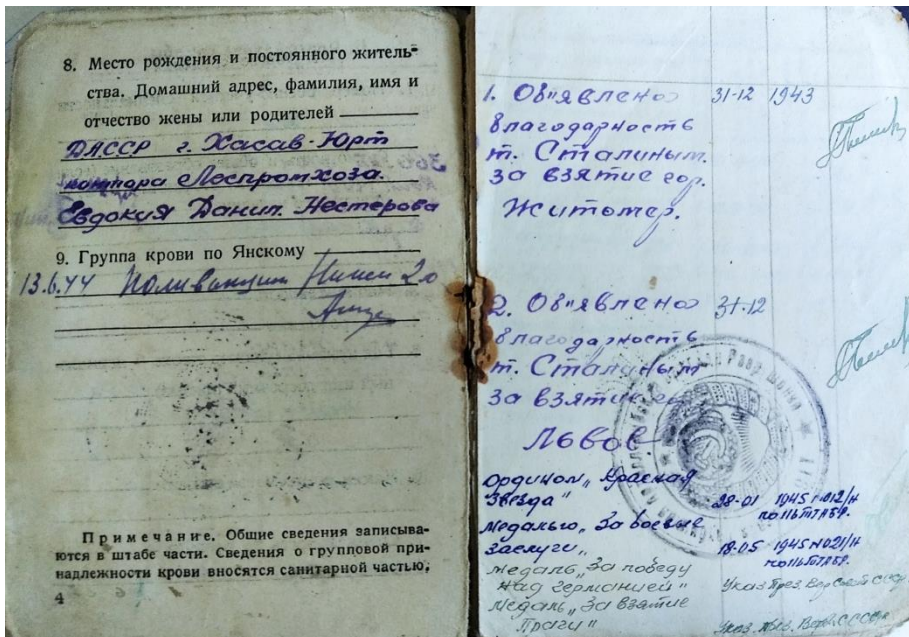 8. Место рождения и постоянного житель-
ства. Домашний адрес, фамилия, имя и
отчество жены или родителей
ДАССР г. Хасав-Юрт
контора Леспромхоза.
Евдокия Данил. Нестерова
9. Группа крови по Янскому
13.6.44
Примечание. Общие сведения записыва-
ются в штабе части. Сведения о групповой при-
надлежности крови вносятся санитарной частью.
4
1. Об"явлено 31-12 1943
благодарность
т. Сталиным.
за взятие гор.
Житомер.
2. Об"явлено 31-12
благодарность
т. Сталиным
за взятие
Львов
ордином „Красная
Звезда" 28-01 1945 №012/н
медалью „За боевые
заслуги„ 18-05 1945 №021/н
медаль „За победу
над германией"
медаль „За взятие
Праги"